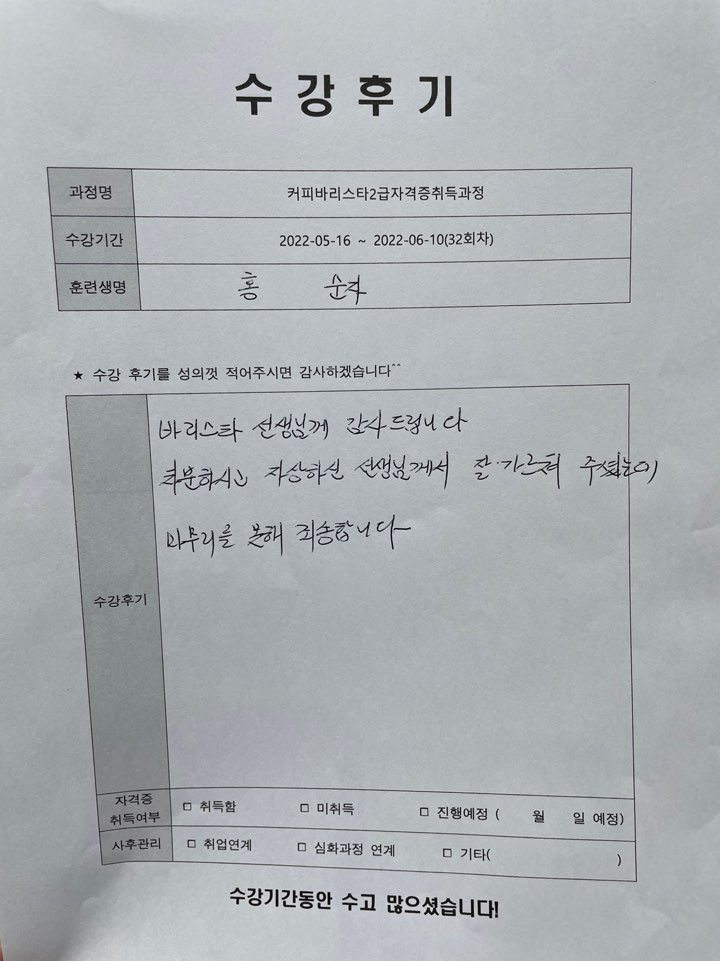 수강후기
과정명 커피바리스타2급자격증취득과정
수강기간 2022-05-16 ~ 2022-06-10(32회차)
훈련생명 홍 순자
★ 수강 후기를 성의껏 적어주시면 감사하겠습니다^^
바리스타 선생님께 감사드립니다
차분하시고 자상하신 선생님께서 잘 가르쳐 주셨는데
마무리를 못해 죄송합니다
수강후기
자격증
취득여부 □ 취득함 □ 미취득 □ 진행예정 ( 월 일 예정)
사후관리 □ 취업연계 □ 심화과정 연계 □ 기타( )
수강기간동안 수고 많으셨습니다!